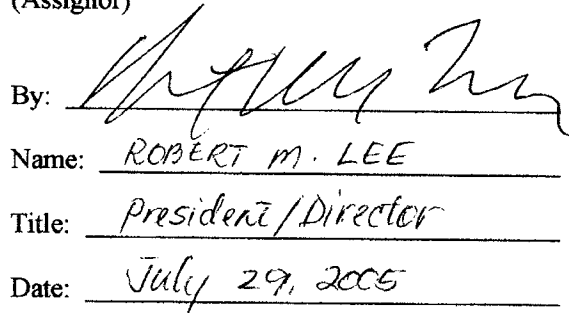 (Assignor)
By:
Name: ROBERT M. LEE
Title: President/Director
Date: July 29, 2005